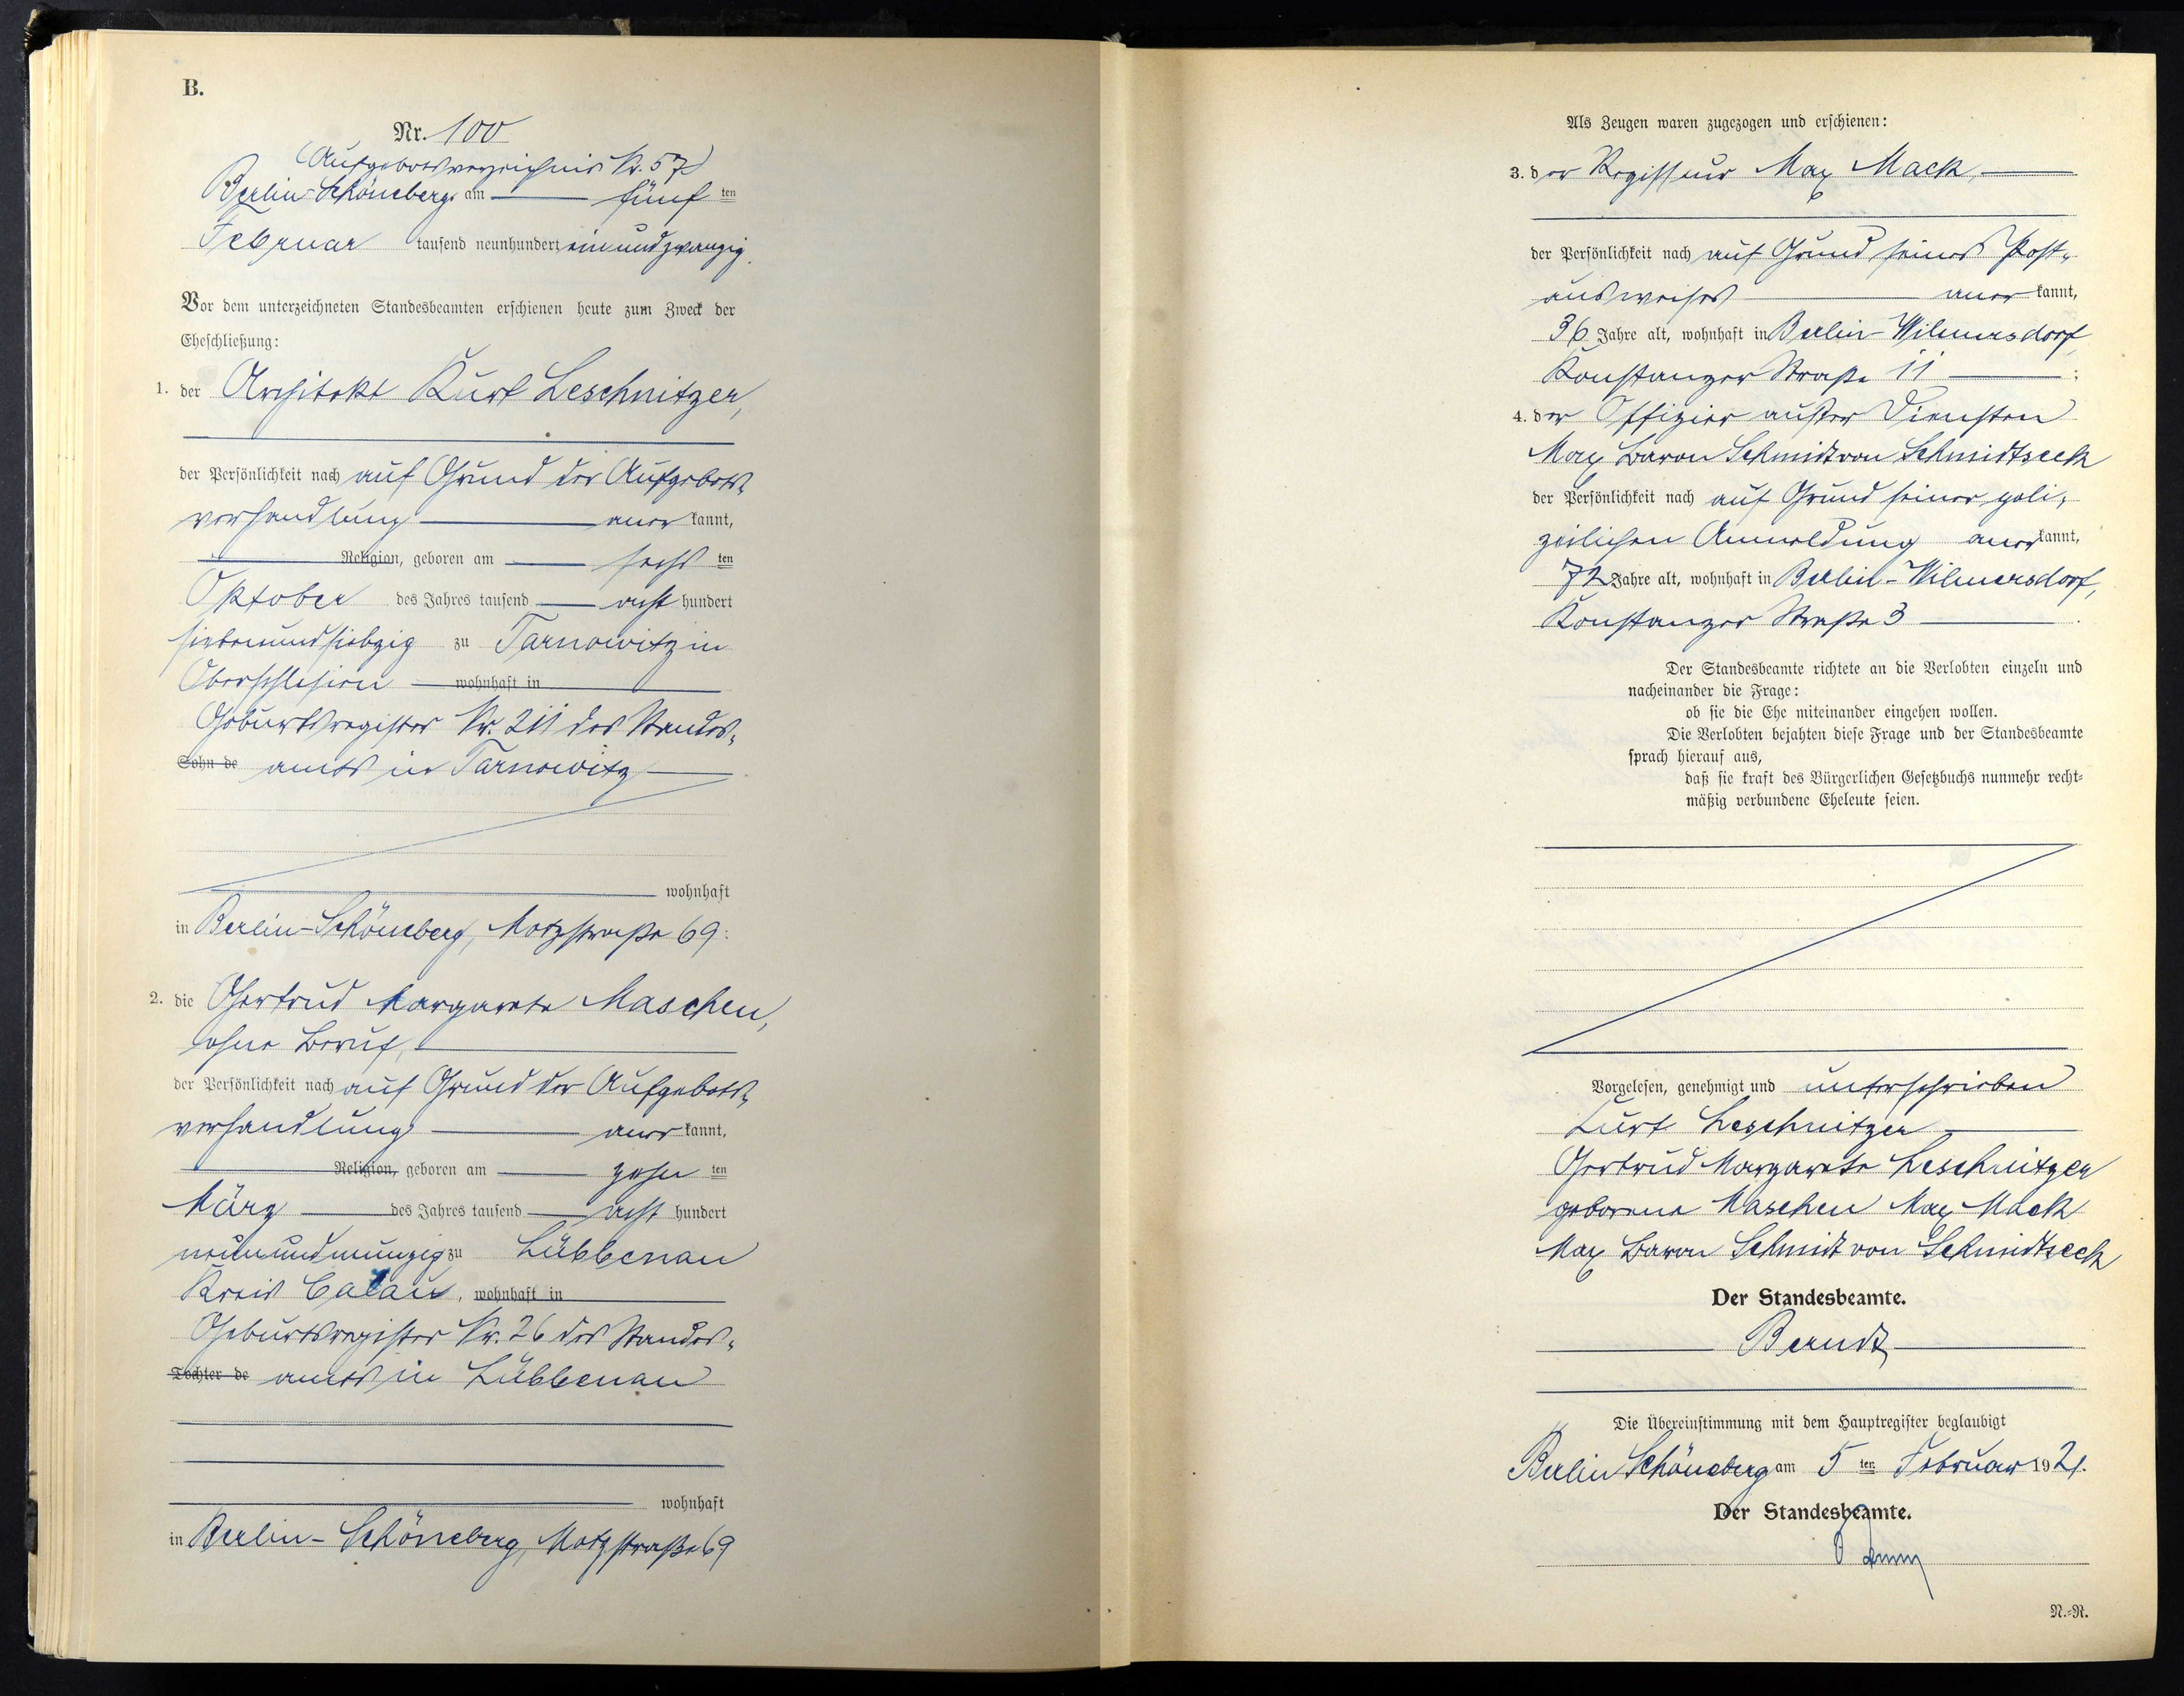 B.
Nr. 100
(Aufgebotsverzeichnis Nr. 57)
Berlin-Schöneberg, am fünf ten
Februar tausend neunhundert einundzwanzig.
Vor dem unterzeichneten Standesbeamten erschienen heute zum Zweck der
Eheschließung:
1. der Architekt Kurt Leschnitzer,
der Persönlichkeit nach auf Grund der Aufgebots-
verhandlung aner kannt,
Religion, geboren am sechs ten
Oktober des Jahres tausend acht hundert
siebenundsiebzig zu Tarnowitz in
Oberschlesien wohnhaft in
Geburtsregister Nr. 211 des Standes-
Sohn de amts in Tarnowitz
wohnhaft
in Berlin-Schöneberg, Motzstraße 69.
2. die Gertrud Margarete Maschen,
ohne Beruf,
der Persönlichkeit nach auf Grund der Aufgebots-
verhandlung aner kannt,
Religion, geboren am zehn ten
März des Jahres tausend acht hundert
neunundneunzig zu Lübbenau
Kreis Calau, wohnhaft in
Geburtsregister Nr. 26 des Standes-
Tochter de amts in Lübbenau
wohnhaft
in Berlin-Schöneberg, Motzstraße 69
Als Zeugen waren zugezogen und erschienen:
3. der Regisseur Max Mack,
der Persönlichkeit nach auf Grund seines Post-
ausweises aner kannt,
36 Jahre alt, wohnhaft in Berlin-Wilmersdorf,
Konstanzer Straße 11;
4. der Offizier außer Diensten
Max Baron Schmidt von Schmidtseck
der Persönlichkeit nach auf Grund seiner poli-
zeilichen Anmeldung aner kannt,
72 Jahre alt, wohnhaft in Berlin-Wilmersdorf,
Konstanzer Straße 3.
Der Standesbeamte richtete an die Verlobten einzeln und
nacheinander die Frage:
ob sie die Ehe miteinander eingehen wollen.
Die Verlobten bejahten diese Frage und der Standesbeamte
sprach hierauf aus,
daß sie kraft des Bürgerlichen Gesetzbuchs nunmehr recht-
mäßig verbundene Eheleute seien.
Vorgelesen, genehmigt und unterschrieben
Kurt Leschnitzer
Gertrud Margarete Leschnitzer
geborene Maschen Max Mack
Max Baron Schmidt von Schmidtseck
Der Standesbeamte.
Berndt
Die Übereinstimmung mit dem Hauptregister beglaubigt
Berlin Schöneberg am 5 ten Februar 1921.
Der Standesbeamte.
N.-R.